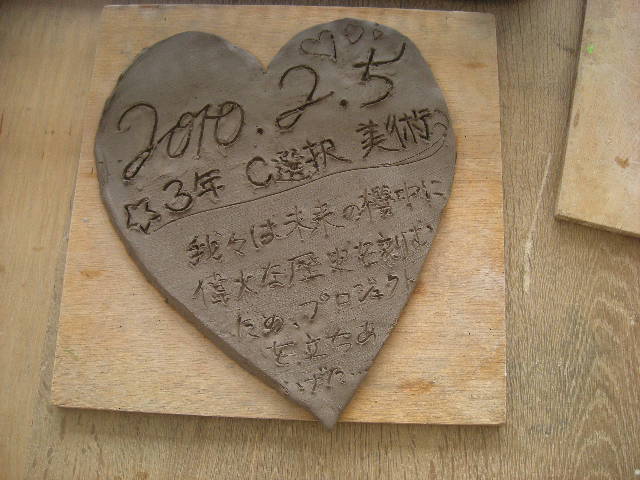 2010.2.5
☆3年 C選択 美術
我々は未来の横中に
偉大な歴史を刻む
ため、プロジェクト
を立ちあ
げた…